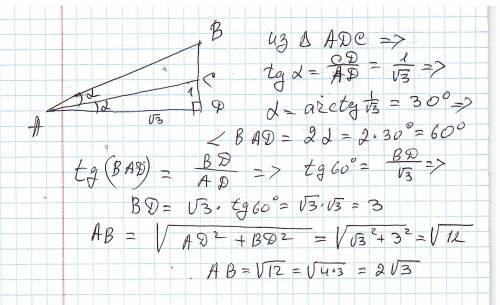 B
из Δ ADC =>
C
tg α = CD/AD = 1/√3 =>
α
α
1
A
√3
D
α = arctg 1/√3 = 30° =>
< BAD = 2α = 2·30° = 60°
tg(BAD) = BD/AD => tg 60° = BD/√3 =>
BD = √3 · tg 60° = √3·√3 = 3
AB = √(AD² + BD²) = √(√3² + 3²) = √12
AB = √12 = √4·3 = 2√3